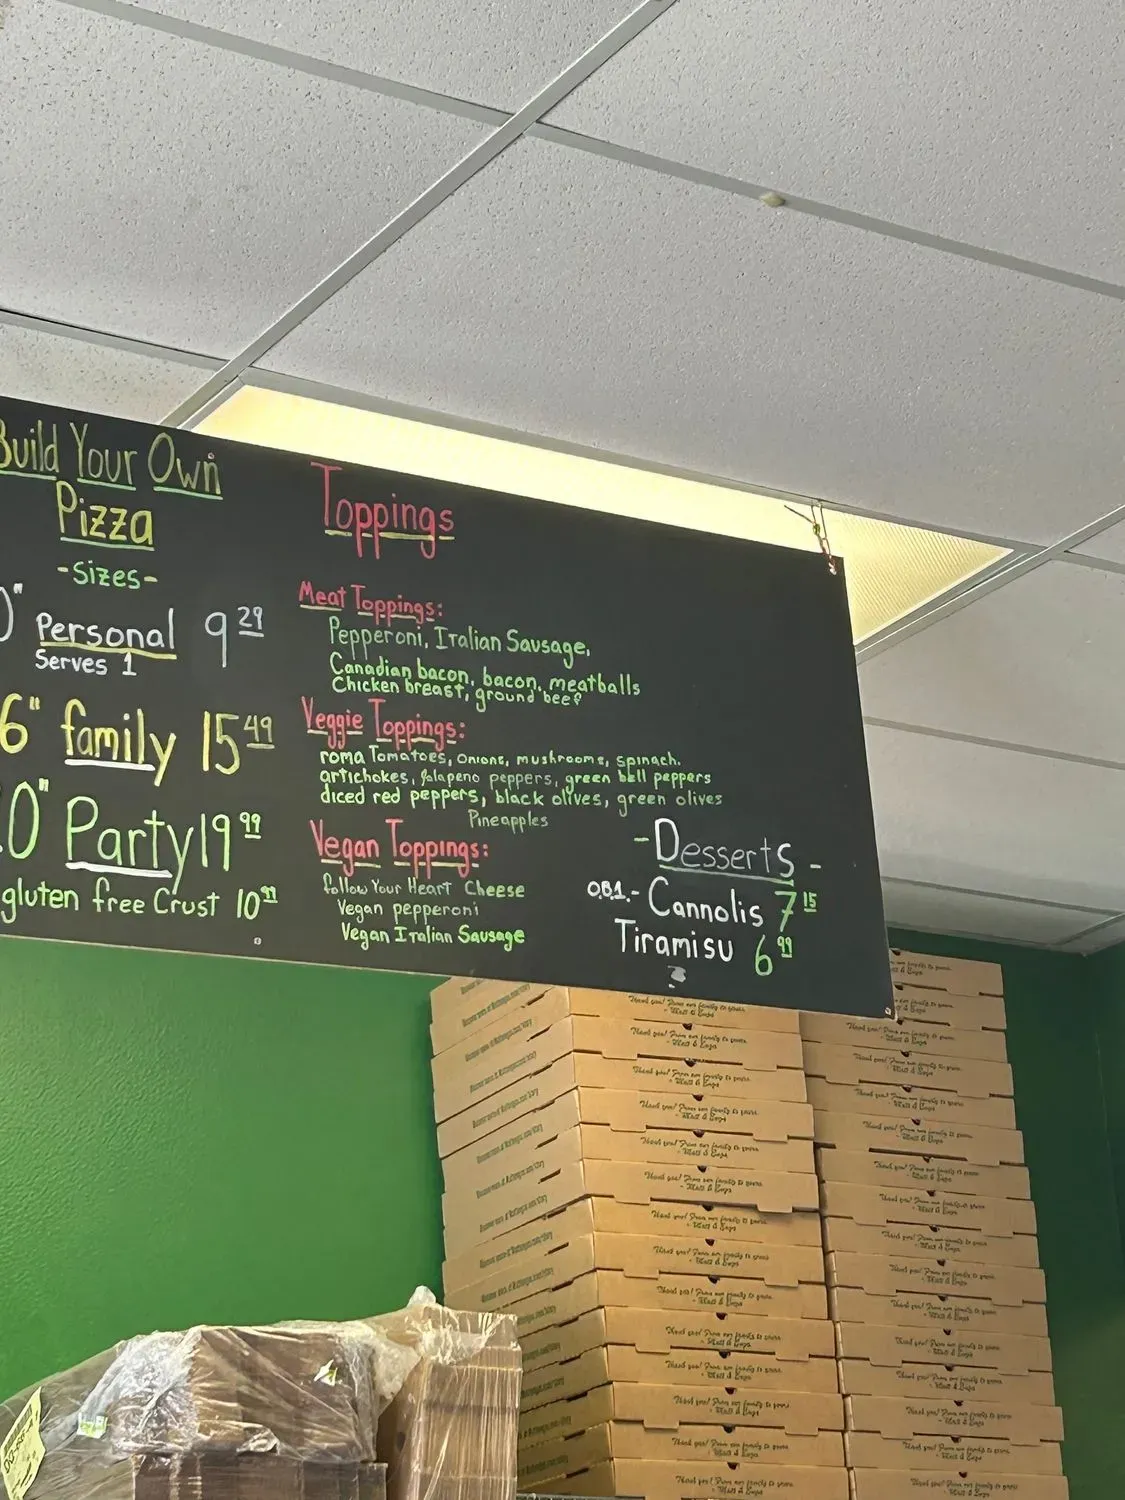 Build Your Own
Pizza
-Sizes-
0" Personal 9 29
Serves 1
6" family 15 49
0" Party 19 99
gluten free Crust 10 99
Toppings
Meat Toppings:
Pepperoni, Italian Sausage,
Canadian bacon, bacon, meatballs
Chicken breast, ground beef
Veggie Toppings:
roma Tomatoes, onions, mushrooms, spinach.
artichokes, Jalapeno peppers, green bell peppers
diced red peppers, black olives, green olives
Pineapples
Vegan Toppings:
follow Your Heart Cheese
Vegan pepperoni
Vegan Italian Sausage
-Desserts-
O.B.1.- Cannolis 7 15
Tiramisu 6 99
Thank you! From our family to yours.